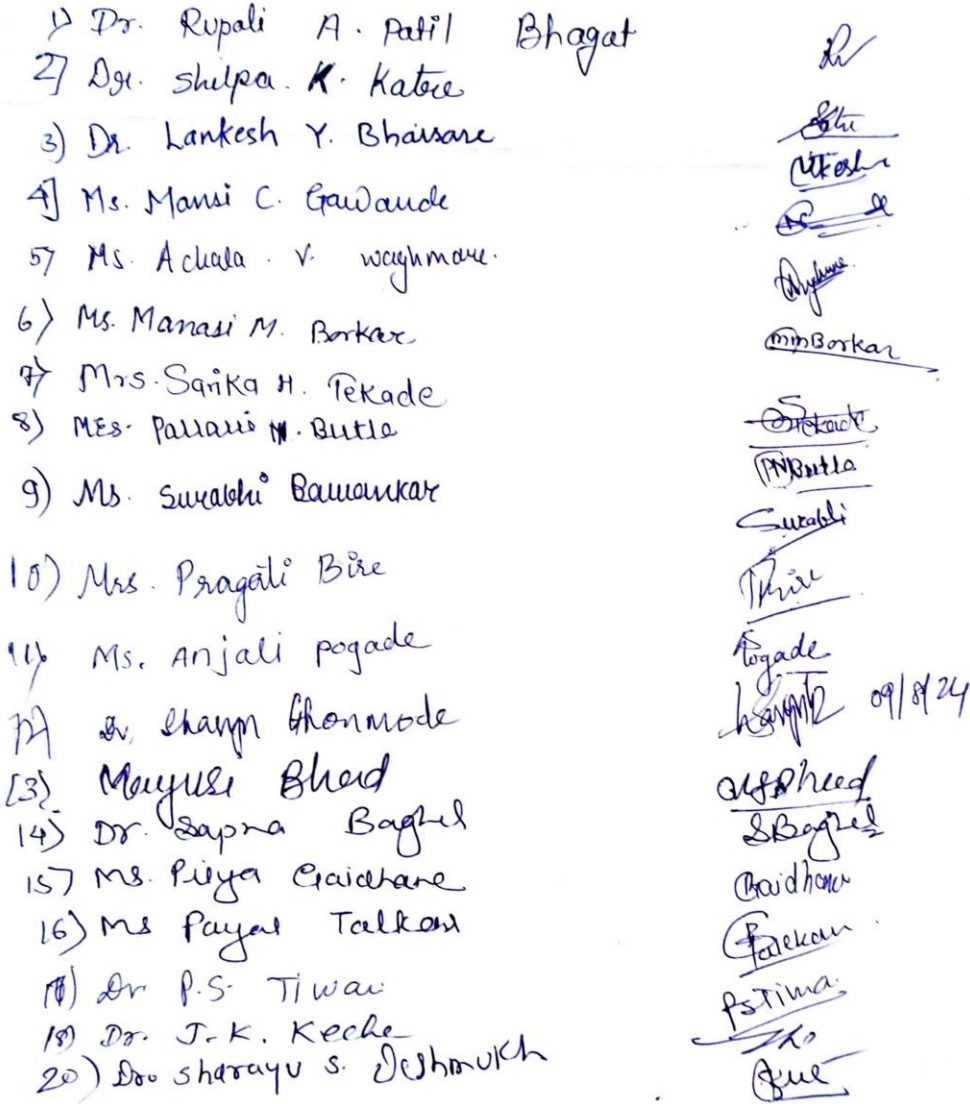 1) Dr. Rupali A. Patil Bhagat
2] Dr. Shilpa. K. Katre
3) Dr. Lankesh Y. Bhaisare
4] Ms. Mansi C. Gawande
5) Ms. Achala. V. Waghmare.
6) Ms. Manasi M. Borkar
mmBorkar
7) Mrs. Sarika H. Tekade
8) Mrs. Pallavi N. Butle
PNButle
9) Ms. Surabhi Bawankar
Surabhi
10) Mrs. Pragati Bire
11) Ms. Anjali pogade
Pogade
12) Dr. Ghonmode
09/8/24
13) Mayuri Bhad
14) Dr. Sapna Baghel
SBaghel
15) Ms. Priya Gaidhane
Gaidhane
16) Ms Payal
17) Dr P.S. Tiwari
18) Dr. J.K. Keche
20) Dr. Sharayu S. Deshmukh